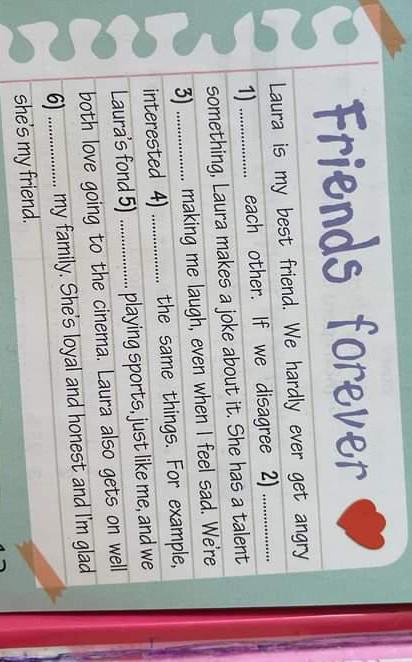 Friends forever
Laura is my best friend. We hardly ever get angry
1) ............. each other. If we disagree 2) .............
something, Laura makes a joke about it. She has a talent
3) ............. making me laugh, even when I feel sad. We're
interested 4) ............. the same things. For example,
Laura's fond 5) ............. playing sports, just like me, and we
both love going to the cinema. Laura also gets on well
6) ............. my family. She's loyal and honest and I'm glad
she's my friend.